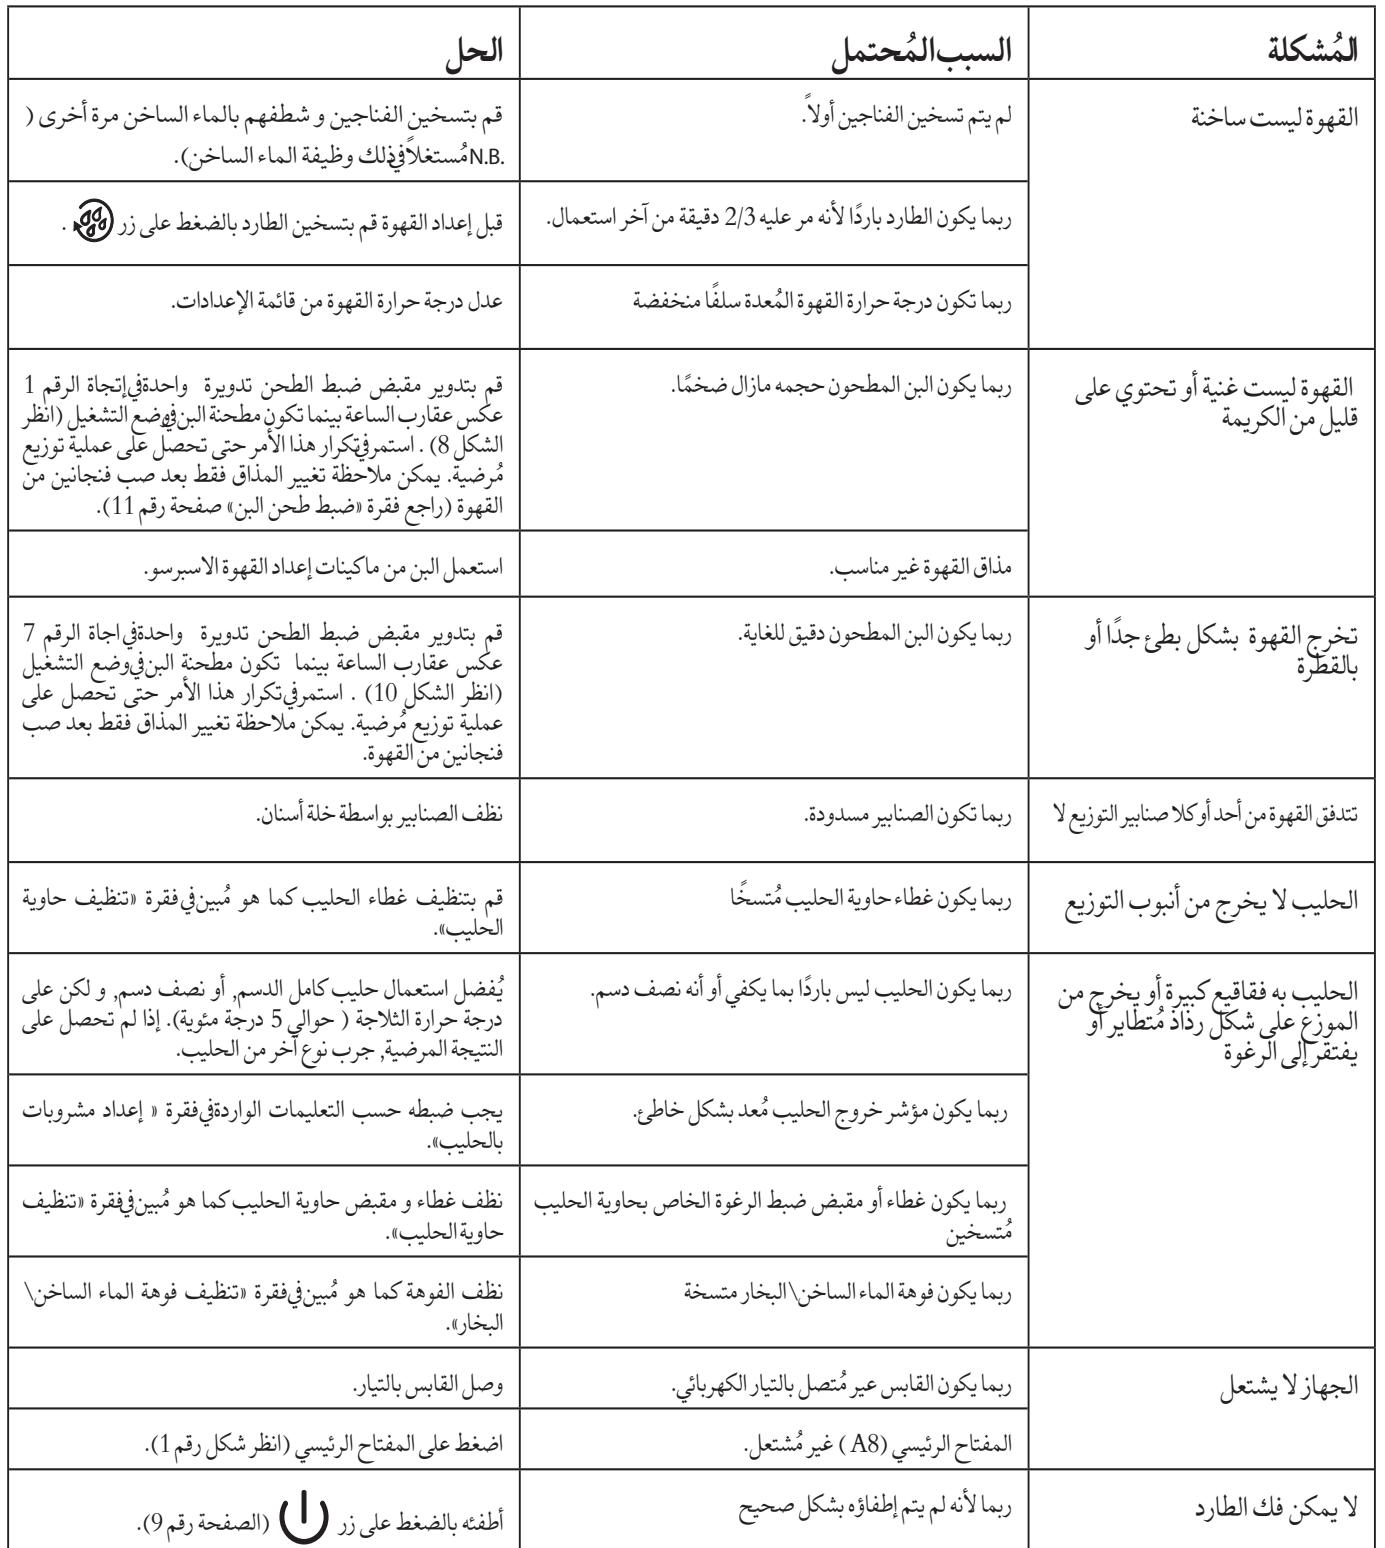 المُشكلة
السبب المُحتمل
الحل
القهوة ليست ساخنة
لم يتم تسخين الفناجين أولاً.
قم بتسخين الفناجين و شطفهم بالماء الساخن مرة أخرى (
.N.B مُستغلاً في ذلك وظيفة الماء الساخن).
ربما يكون الطارد باردًا لأنه مر عليه 2/3 دقيقة من آخر استعمال.
قبل إعداد القهوة قم بتسخين الطارد بالضغط على زر .
ربما تكون درجة حرارة القهوة المُعدة سلفًا منخفضة
عدل درجة حرارة القهوة من قائمة الإعدادات.
القهوة ليست غنية أو تحتوي على
قليل من الكريمة
ربما يكون البن المطحون حجمه مازال ضخمًا.
قم بتدوير مقبض ضبط الطحن تدويرة واحدة في إتجاة الرقم 1
عكس عقارب الساعة بينما تكون مطحنة البن في وضع التشغيل (انظر
الشكل 8) . استمر في تكرار هذا الأمر حتى تحصل على عملية توزيع
مُرضية. يمكن ملاحظة تغيير المذاق فقط بعد صب فنجانين من
القهوة (راجع فقرة «ضبط طحن البن» صفحة رقم 11).
مذاق القهوة غير مناسب.
استعمل البن من ماكينات إعداد القهوة الاسبرسو.
تخرج القهوة بشكل بطئ جدًا أو
بالقطرة
ربما يكون البن المطحون دقيق للغاية.
قم بتدوير مقبض ضبط الطحن تدويرة واحدة في اجاة الرقم 7
عكس عقارب الساعة بينما تكون مطحنة البن في وضع التشغيل
(انظر الشكل 10) . استمر في تكرار هذا الأمر حتى تحصل على
عملية توزيع مُرضية. يمكن ملاحظة تغيير المذاق فقط بعد صب
فنجانين من القهوة.
تتدفق القهوة من أحد أو كلا صنابير التوزيع لا
ربما تكون الصنابير مسدودة.
نظف الصنابير بواسطة خلة أسنان.
الحليب لا يخرج من أنبوب التوزيع
ربما يكون غطاء حاوية الحليب مُتسخًا
قم بتنظيف غطاء الحليب كما هو مُبين في فقرة «تنظيف حاوية
الحليب».
الحليب به فقاقيع كبيرة أو يخرج من
الموزع على شكل رذاذ مُتطاير أو
يفتقر إلى الرغوة
ربما يكون الحليب ليس باردًا بما يكفي أو أنه نصف دسم.
يُفضل استعمال حليب كامل الدسم, أو نصف دسم, و لكن على
درجة حرارة الثلاجة ( حوالي 5 درجة مئوية). إذا لم تحصل على
النتيجة المرضية, جرب نوع آخر من الحليب.
ربما يكون مؤشر خروج الحليب مُعد بشكل خاطئ.
يجب ضبطه حسب التعليمات الواردة في فقرة « إعداد مشروبات
بالحليب».
ربما يكون غطاء أو مقبض ضبط الرغوة الخاص بحاوية الحليب
مُتسخين
نظف غطاء و مقبض حاوية الحليب كما هو مُبين في فقرة «تنظيف
حاوية الحليب».
ربما يكون فوهة الماء الساخن\ البخار متسخة
نظف الفوهة كما هو مُبين في فقرة «تنظيف فوهة الماء الساخن\
البخار».
الجهاز لا يشتعل
ربما يكون القابس عير مُتصل بالتيار الكهربائي.
وصل القابس بالتيار.
المفتاح الرئيسي (A8 ) غير مُشتعل.
اضغط على المفتاح الرئيسي (انظر شكل رقم 1).
لا يمكن فك الطارد
ربما لأنه لم يتم إطفاؤه بشكل صحيح
أطفئه بالضغط على زر (الصفحة رقم 9).